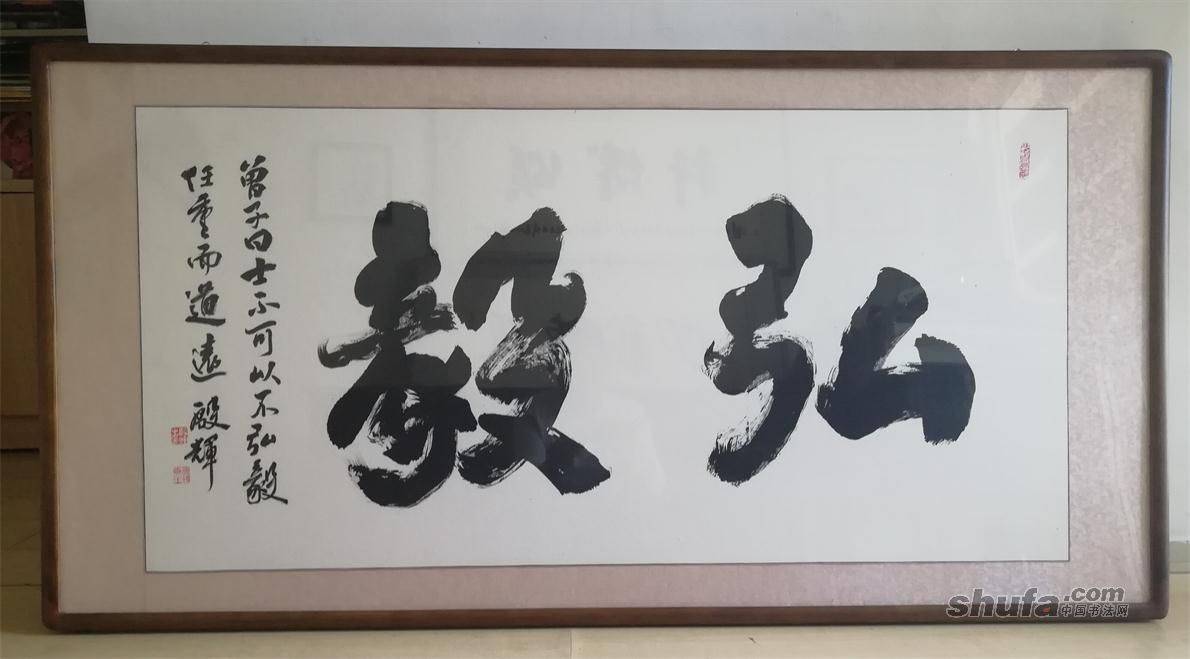 弘毅
曾子曰士不可以不弘毅
任重而道遠 殿輝
shufa.com
中国书法网